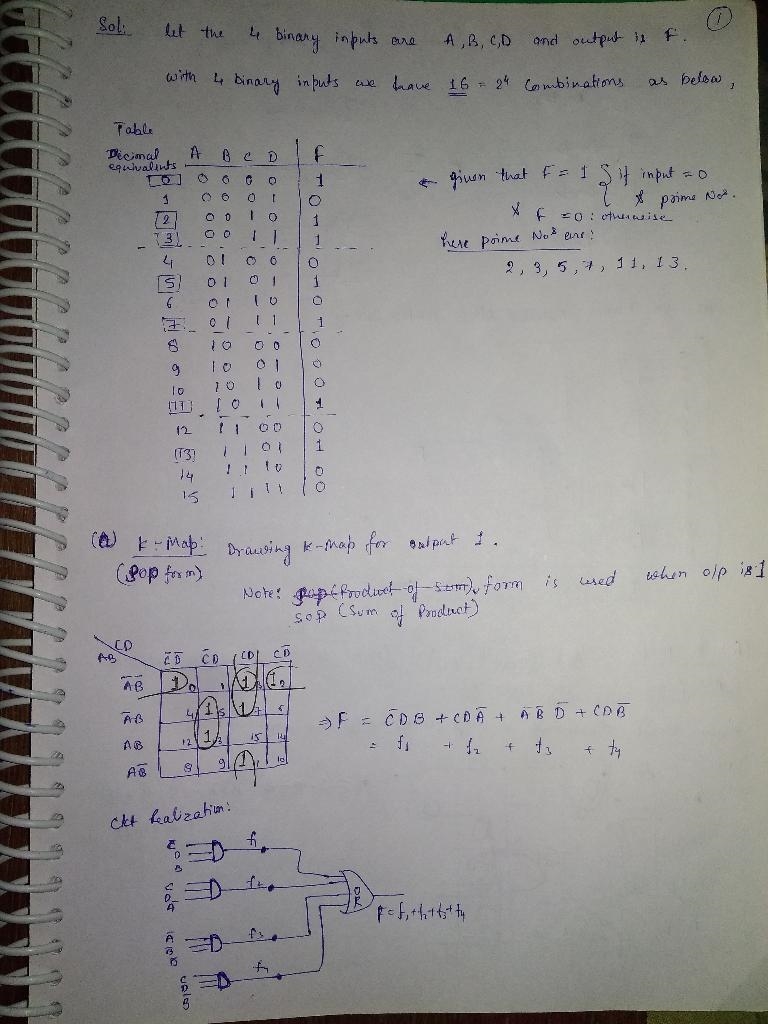 ①
Sol: let the 4 binary inputs are A, B, C, D and output is F.
with 4 binary inputs we have 16 = 2⁴ Combinations as below,
Table
Decimal equivalents A B C D | F
0 0 0 0 0 1
1 0 0 0 1 0
2 0 0 1 0 1
3 0 0 1 1 1
4 0 1 0 0 0
5 0 1 0 1 1
6 0 1 1 0 0
7 0 1 1 1 1
8 1 0 0 0 0
9 1 0 0 1 0
10 1 0 1 0 0
11 1 0 1 1 1
12 1 1 0 0 0
13 1 1 0 1 1
14 1 1 1 0 0
15 1 1 1 1 0
← given that F = 1 { if input = 0
& prime Nos.
& F = 0 : otherwise
here prime Nos are:
2, 3, 5, 7, 11, 13.
(a) K-Map: Drawing K-map for output 1.
(SOP form)
Note: pop (Product of Sum) form is used when o/p is 1
SOP (Sum of Product)
AB CD C̄D̄ C̄D CD CD̄
ĀB̄ 1 0 1 1 3 1 2
ĀB 4 1 5 1 7 6
AB 12 1 13 15 14
AB̄ 8 9 1 11 10
⇒ F = C̄DB + CDĀ + ĀB̄D̄ + CDB̄
= f₁ + f₂ + f₃ + f₄
Ckt Realization:
C̄ D B f₁
C D Ā f₂
OR
F = f₁+f₂+f₃+f₄
Ā B̄ D̄ f₃
C D B̄ f₄